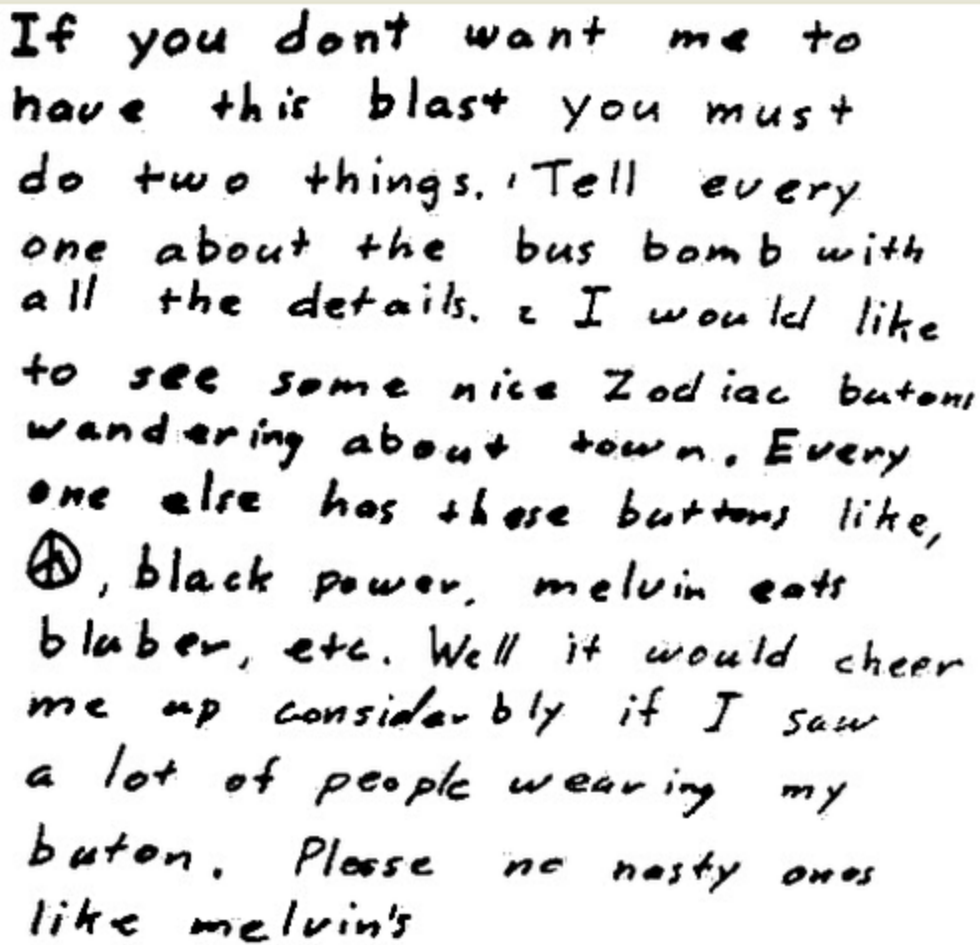 If you dont want me to
have this blast you must
do two things. 1 Tell every
one about the bus bomb with
all the details. 2 I would like
to see some nice Zodiac butons
wandering about town. Every
one else has these buttons like,
☮, black power, melvin eats
bluber, etc. Well it would cheer
me up considerbly if I saw
a lot of people wearing my
buton. Please no nasty ones
like melvin's